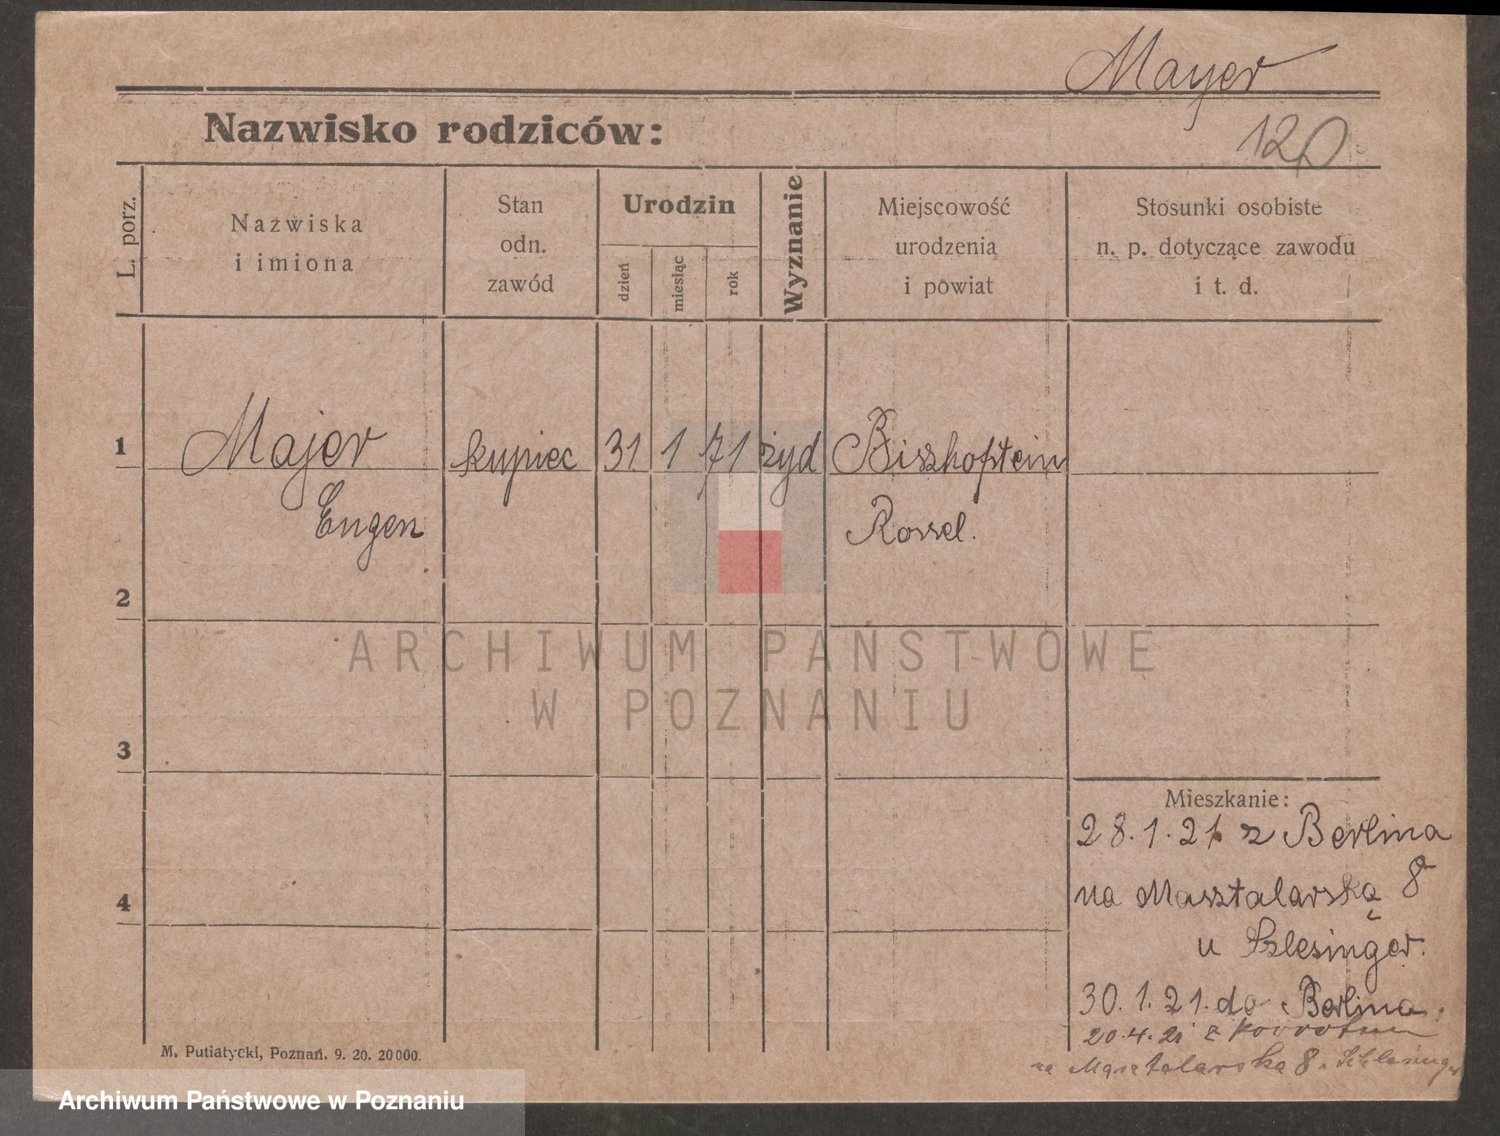 Mayer
Nazwisko rodziców:
120
L. porz.
Nazwiska
i imiona
Stan
odn.
zawód
Urodzin
dzień
miesiąc
rok
Wyznanie
Miejscowość
urodzenia
i powiat
Stosunki osobiste
n. p. dotyczące zawodu
i t. d.
1
Majer
Eugen
kupiec
31
1
71
żyd
Biszhofstein
Rossel.
2
3
4
ARCHIWUM PAŃSTWOWE
W POZNANIU
Mieszkanie:
28.1.21 z Berlina
na Masztalarską 8
u Szlesinger.
30.1.21. do Berlina.
20.4.21 z powrotem
na Masztalarska 8. Schlesinger
M. Putiatycki, Poznań. 9. 20. 20000.
Archiwum Państwowe w Poznaniu